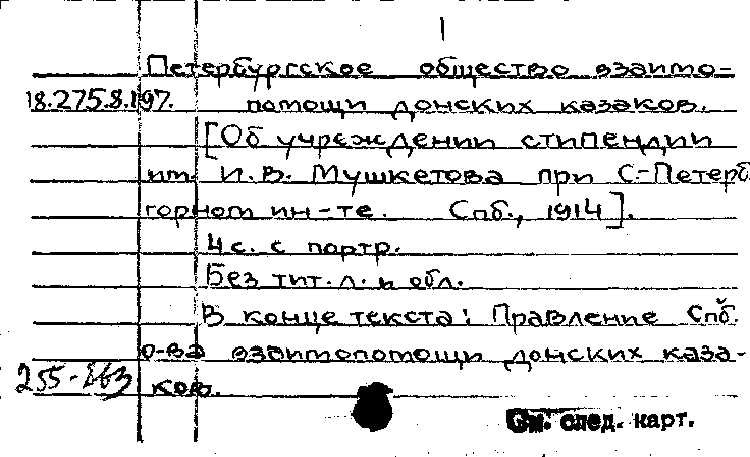 1
Петербургское общество взаимо-
18.275.8.197. помощи донских казаков.
[Об учреждении стипендии
им. И.В. Мушкетова при С-Петерб
горном ин-те. Спб., 1914].
4 с. с портр.
Без тит. л. и обл.
В конце текста: Правление Спб.
о-ва взаимопомощи донских каза-
ков.
См. след. карт.